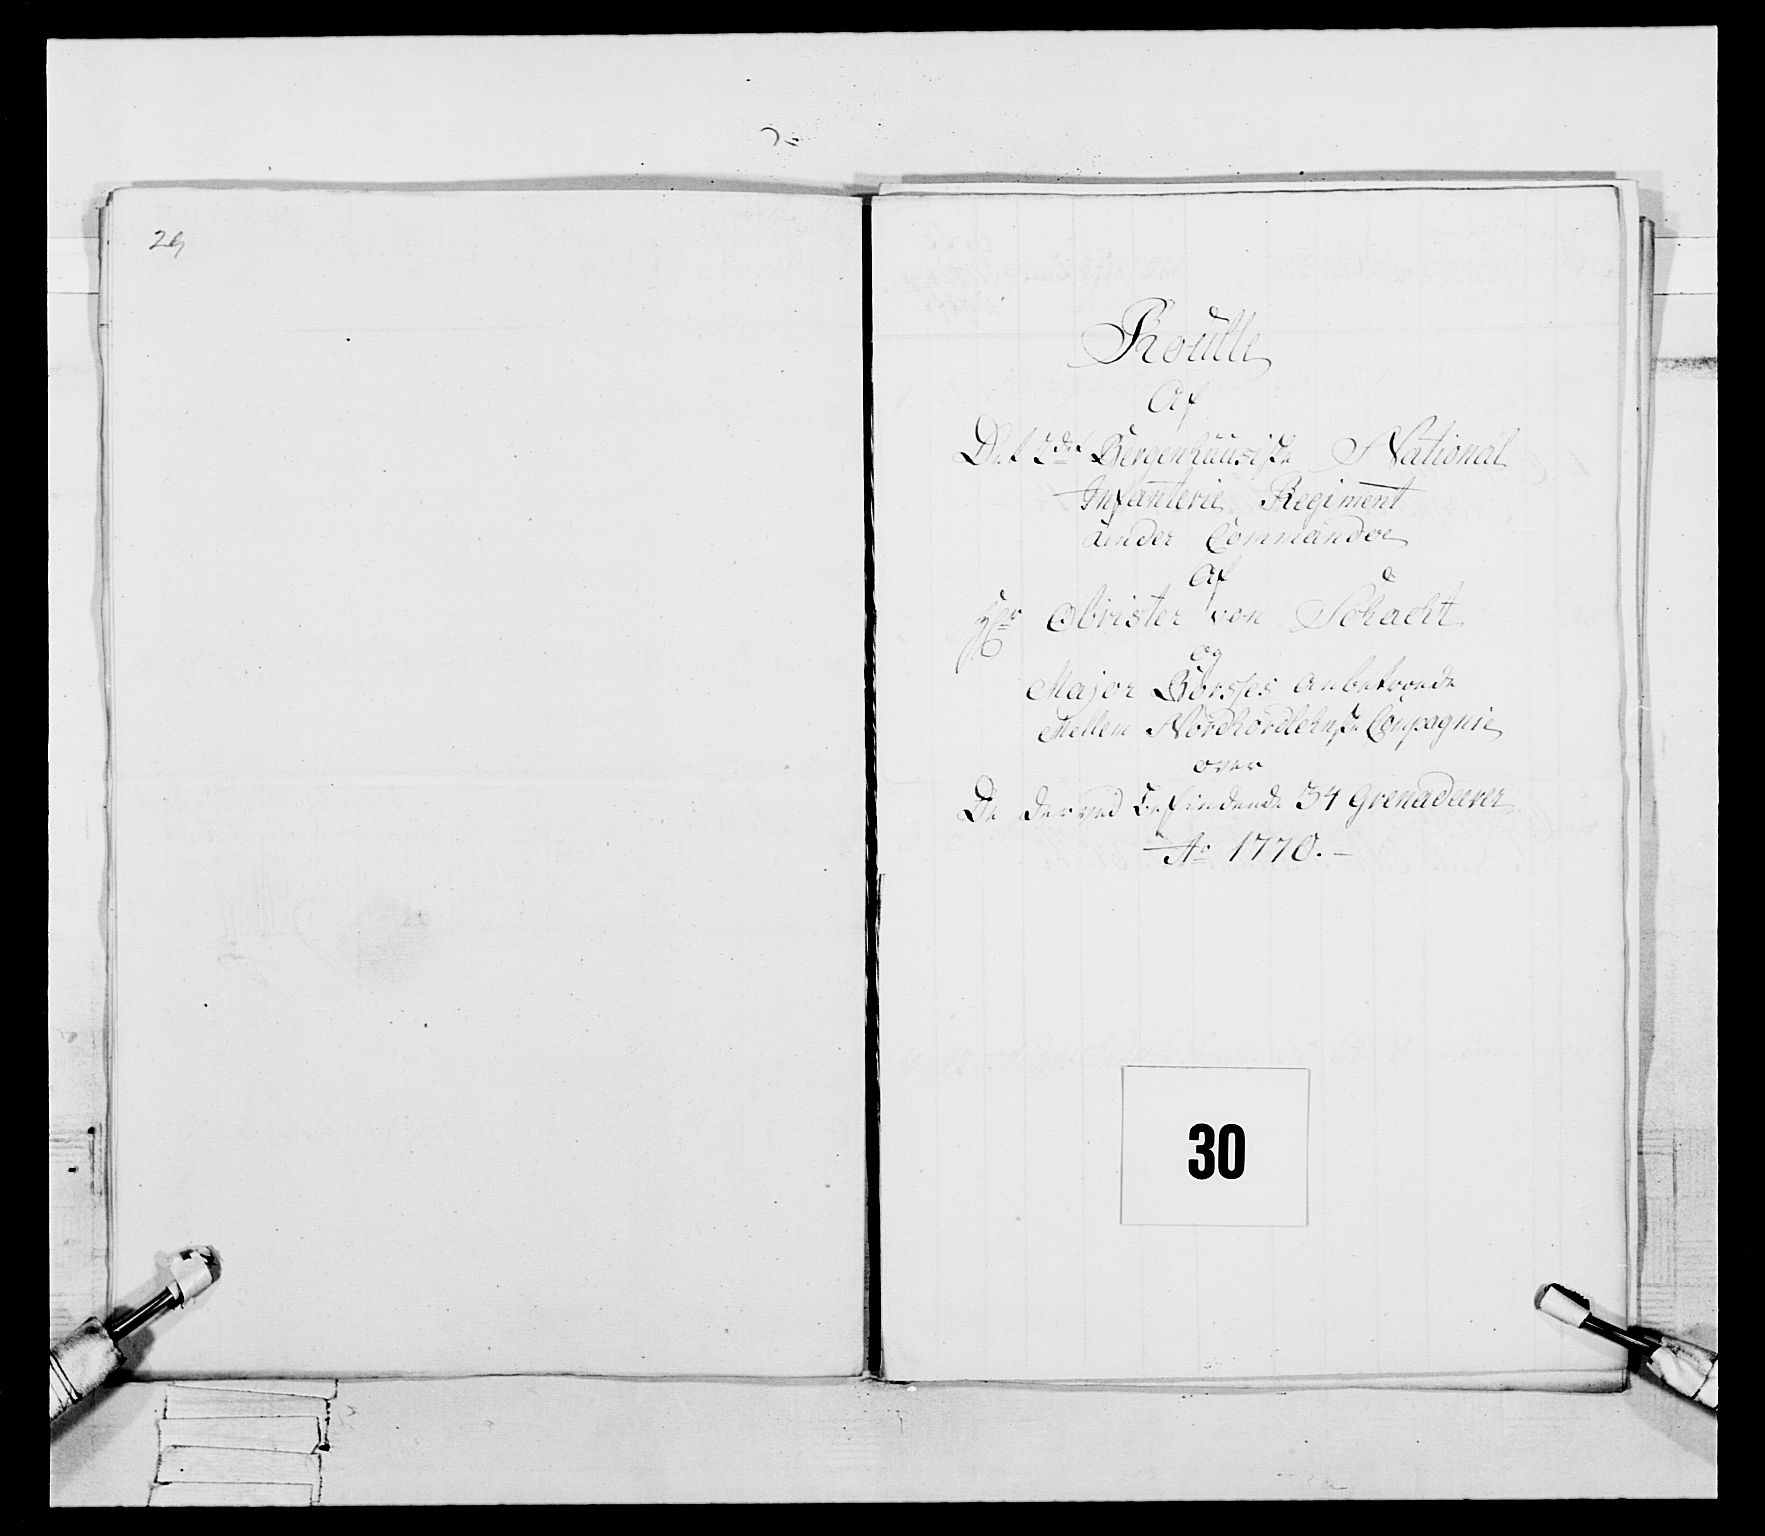 29
Roulle
Af
Det 2det Bergenhuusiske National
Infanterie Regiment
under Commando
Af
Hr Obrister von Schacht
og
Major Børses anbetroede
Mellem Nordhordlehnske Compagnie
over
De derved befindende 34 Grenadeerer
Ao 1770.
30